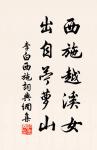 西施越溪女
出自苎萝山
李白西施詞典網集